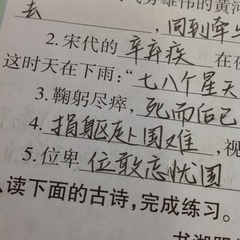 去 ,同到牵牛
2.宋代的 辛弃疾 在
这时天在下雨:“七八个星天
3.鞠躬尽瘁, 死而后已
4. 捐躯赴国难 ,视
5.位卑 位敢忘忧国
读下面的古诗,完成练习。